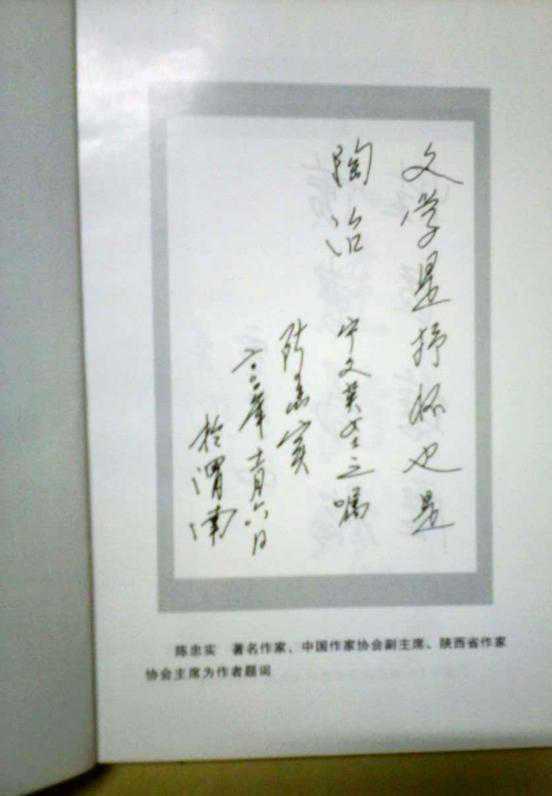 文学是抒怀也是
陶冶
文英 之嘱
陈忠实
二〇〇 年十一月六日
於渭南
陈忠实 著名作家、中国作家协会副主席、陕西省作家
协会主席为作者题词